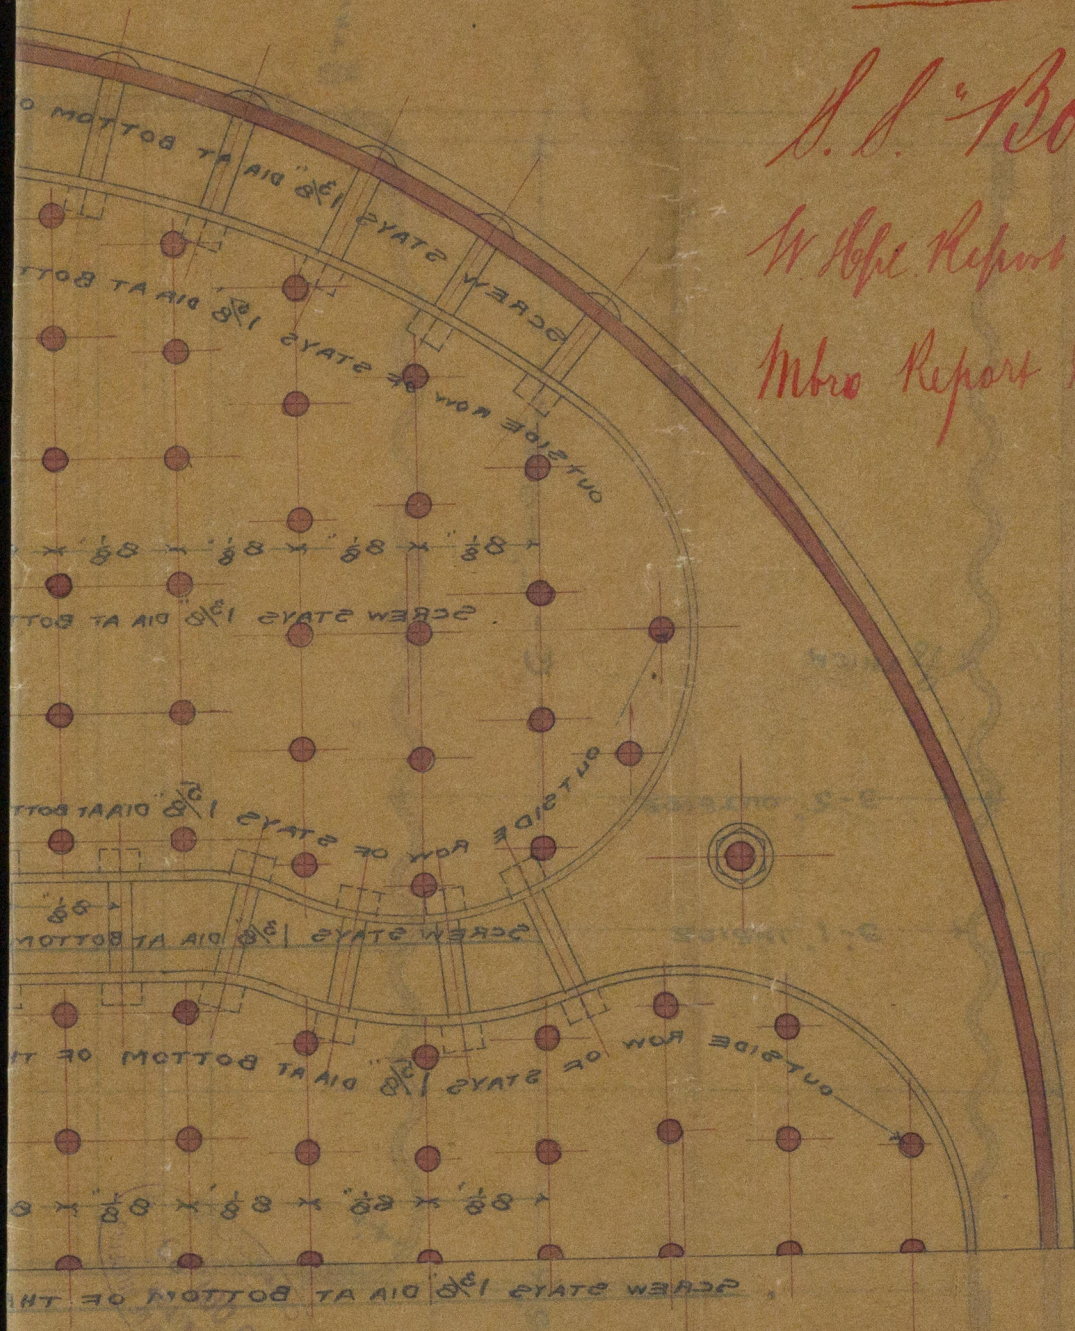 S.S. "Bo
W. Hpl Report
Mbro Report
SCREW STAYS 1⅜" DIA AT BOTTOM O
OUTSIDE ROW OF STAYS 1⅝" DIA AT BOTT
8⅛" × 8⅛" × 8⅛" × 8⅛" ×
SCREW STAYS 1⅜" DIA AT BOTT
OUTSIDE ROW OF STAYS 1⅝" DIA AT BOTT
8⅛"
SCREW STAYS 1⅜" DIA AT BOTTOM
OUTSIDE ROW OF STAYS 1⅝" DIA AT BOTTOM OF TH
8⅛" × 8⅛" × 8⅛" × 8⅛" × 8
SCREW STAYS 1⅜" DIA AT BOTTOM OF TH